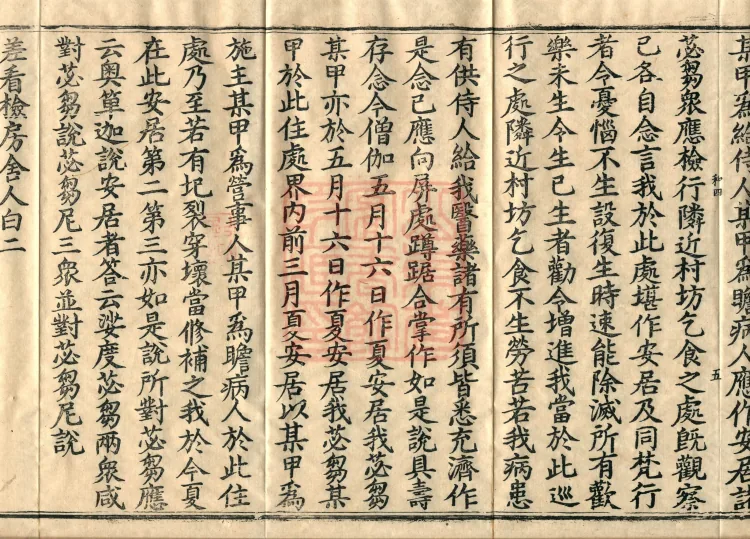 某甲爲給侍人某甲爲瞻病人應作安居
和四
五
苾芻衆應檢行隣近村坊乞食之處旣觀察
已各自念言我於此處堪作安居及同梵行
者令憂惱不生設復生時速能除滅所有歡
樂未生令生已生者勸令增進我當於此巡
行之處隣近村坊乞食不生勞苦若我病患
有供侍人給我醫藥諸有所須皆悉充濟作
是念已應向屏處蹲踞合掌作如是說具壽
存念今僧伽五月十六日作夏安居我苾芻
某甲亦於五月十六日作夏安居我苾芻某
甲於此住處界內前三月夏安居以某甲爲
施主某甲爲營事人某甲爲瞻病人於此住
處乃至若有圮裂穿壞當修補之我於今夏
在此安居第二第三亦如是說所對苾芻應
云奧箄迦說安居者答云娑度苾芻兩衆咸
對苾芻說苾芻尼三衆並對苾芻尼說
差看檢房舍人白二